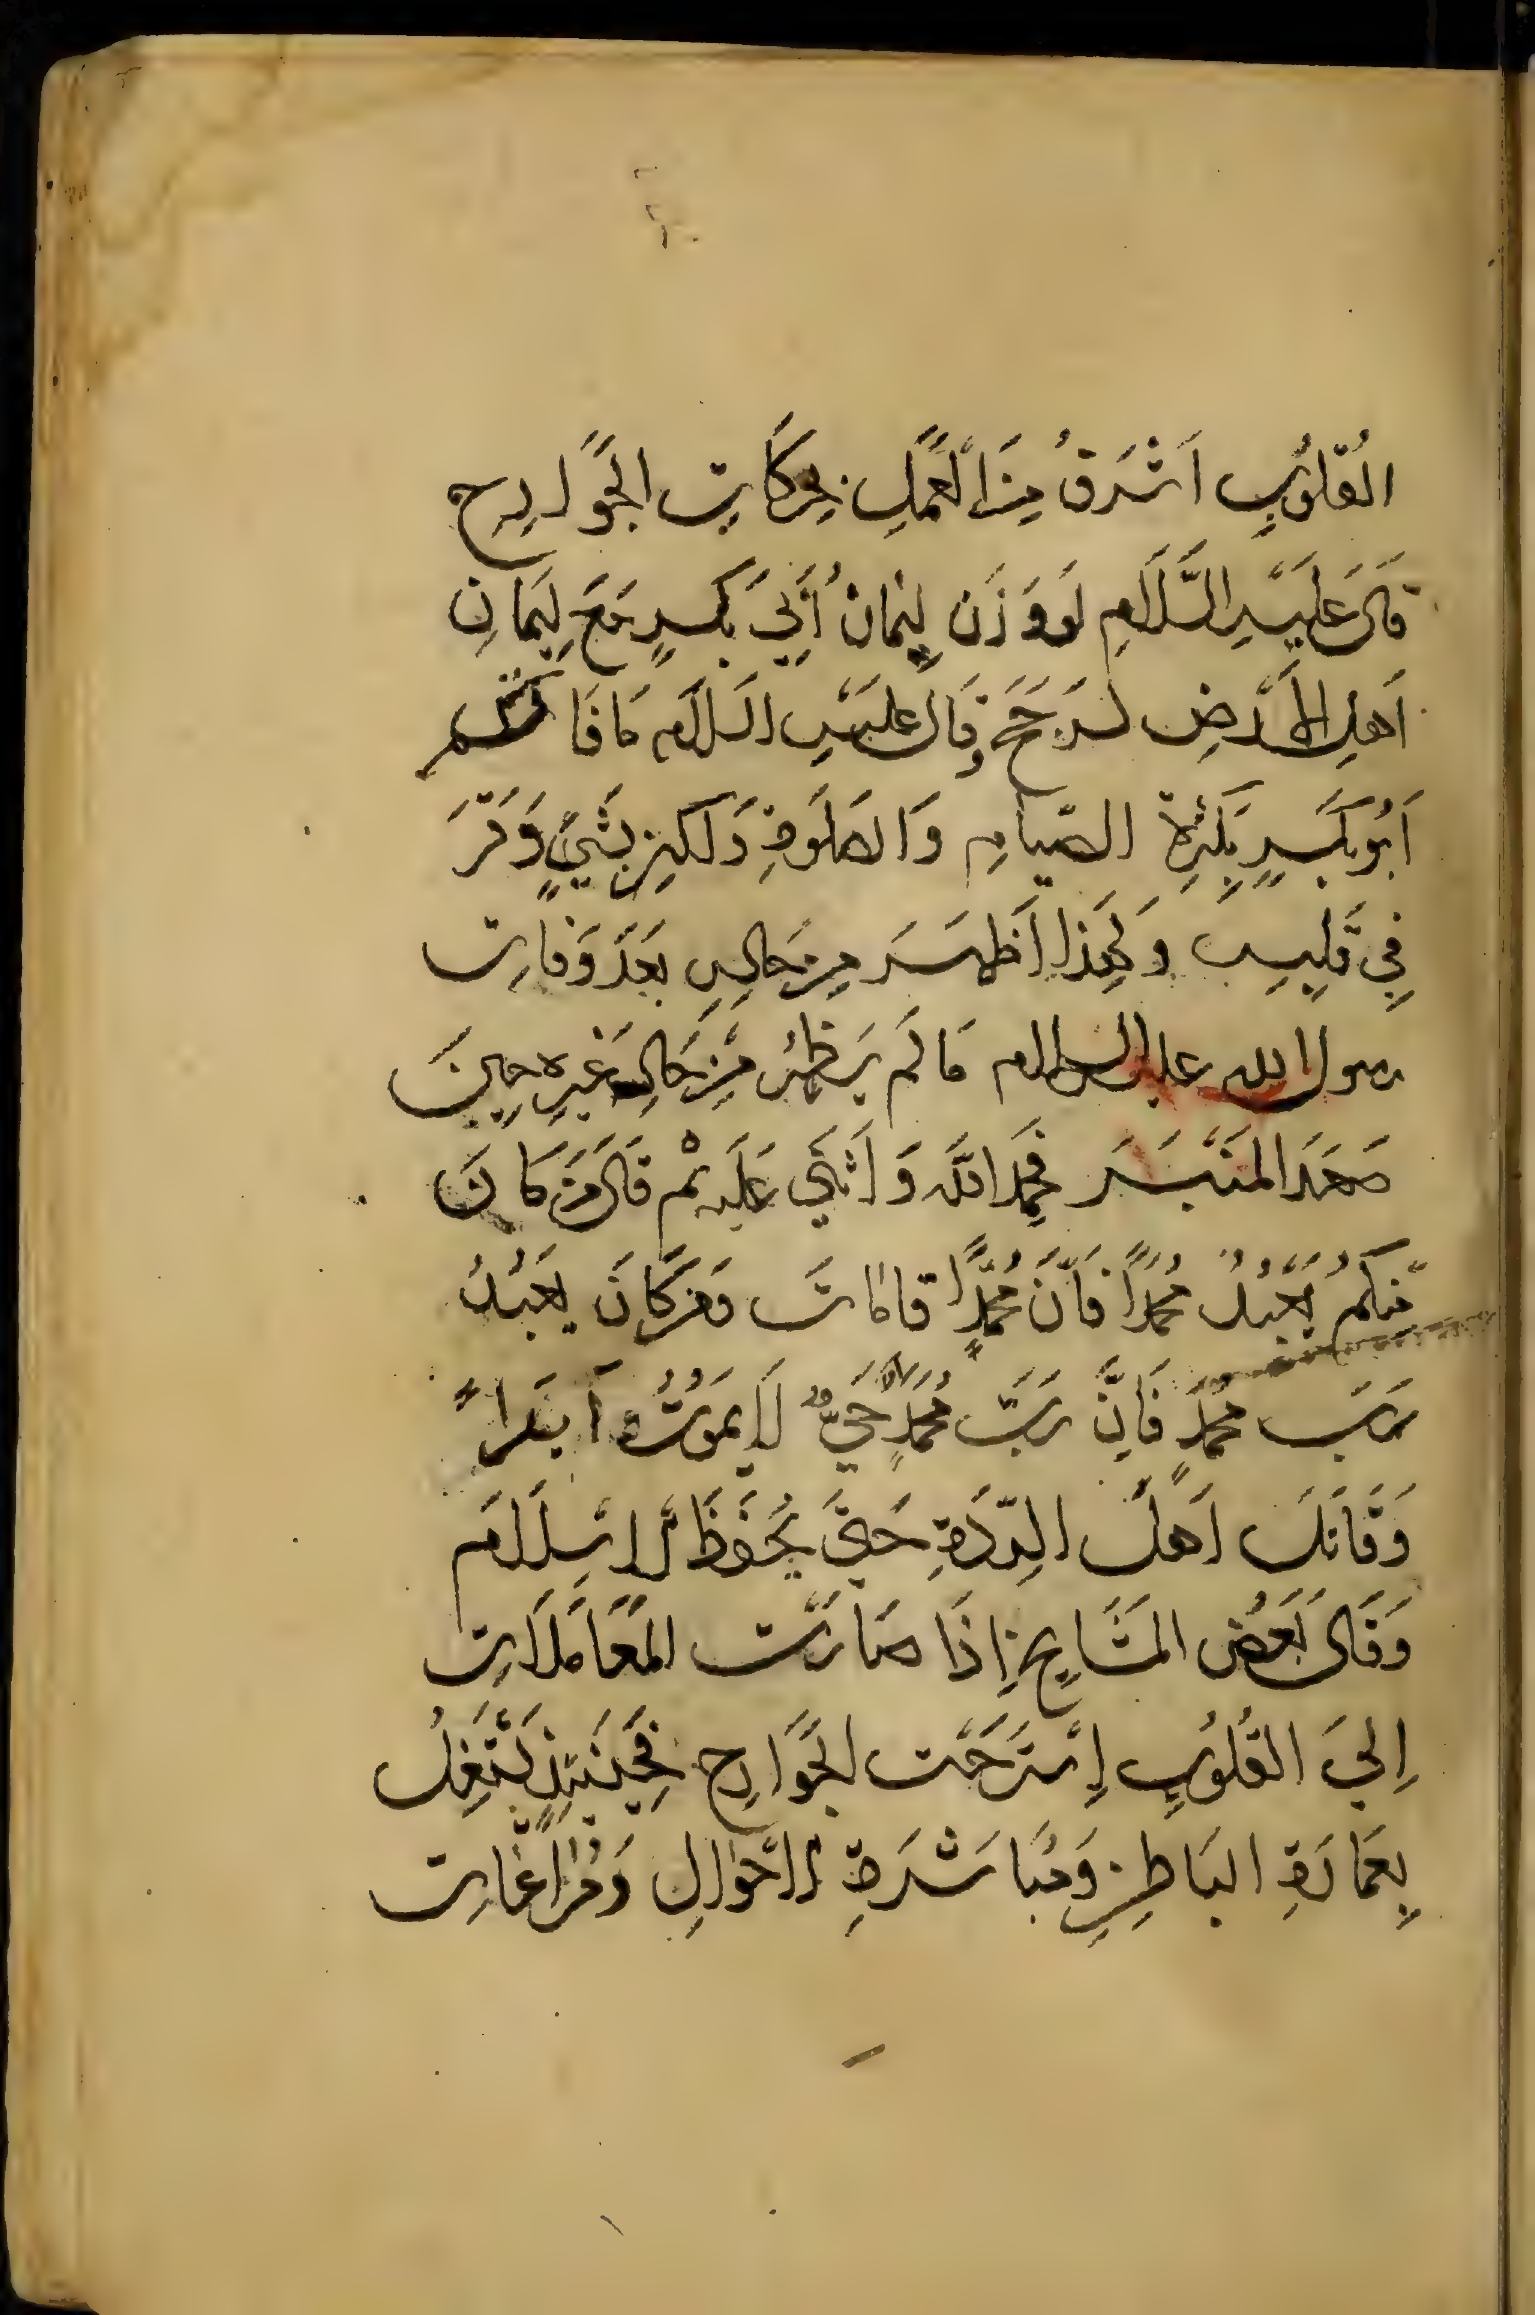 القُلُوبِ اَشْرَفُ مِنَ العَمَلِ بِحَرَكَاتِ الجَوَارِحِ
قَالَ عَلَيْهِ السَّلَامِ لَو وَزَن اِيْمَانُ أَبِي بَكْرٍ مَعَ اِيمَانِ
اَهلِ الاَرْضِ لَرَجَحَ وَقَالَ عليهِ السلام مَا فَاقَكُم
اَبُو بَكْرٍ بِكَثرِةِ الصّيامِ وَالصَلَوةِ وَلكِن بِشَيءٍ وَقَرَ
فِي قَلِبهِ وَلِهَذا اَظهَرَ مِن حَالِهِ بَعدَ وَفاتِ
رسول الله عليه السلام مَا لَم يَظهُر مِن حَالِ غيرِه حِينَ
صَعَدَ المَنبَرَ فَحِمَد اللَّه وَاَثنَي عَلَيه ثم قَالَ مَن كَانَ
مّنِكُم يَعْبُدُ مُحَمّداً فَاَنَّ مُحَمّداً قد مَاتَ وَمَن كَانَ يَعبُدُ
رَبَ مُحمَّدٍ فَاِنَّ رَبَّ مُحَمَّدٍ حَيٌّ لَا يَمَوُتُ اَبَداً
وَقَاتَلَ اَهلَ الرِّدَةِ حَتّيَ يَحُفظَ الاسِلَام
وَقَالَ بَعَضُ المَشَايِخِ اِذَا صَارَت المُعَامَلَاتِ
اِليَ القُلُوبِ اِستَرَحَت الجَوَارِح فَحِينَئِذٍ يَشتَغِلُ
بِعَمَارَةِ البَاطِنِ وَمُبَاشَرَةِ الاَحوَالِ وَمُرَاعَاتِ